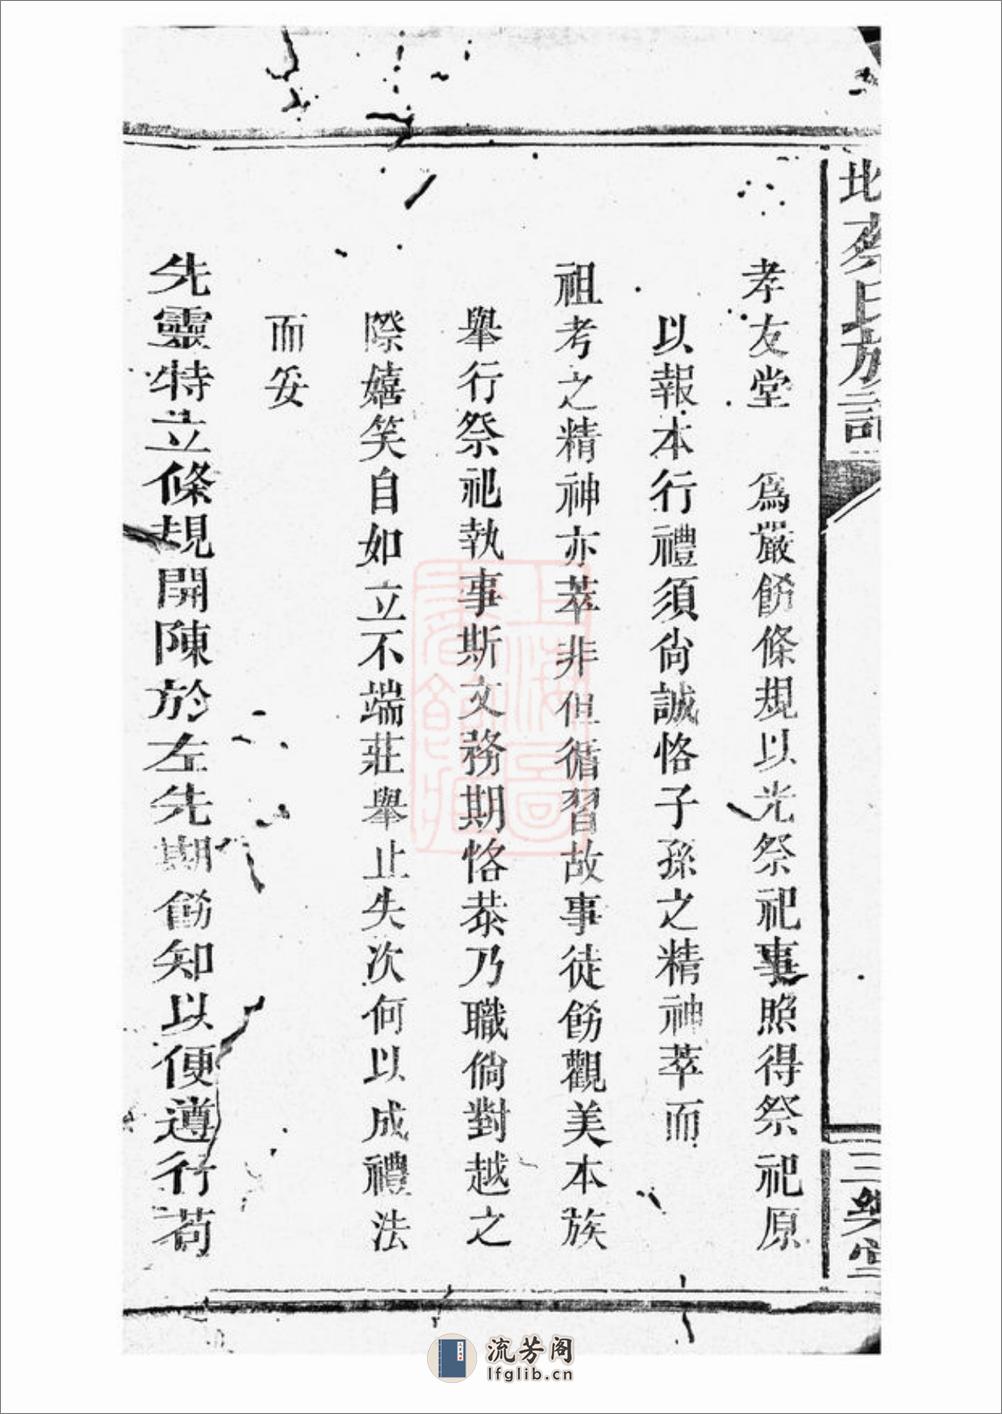 孝友堂　爲嚴飭條規以光祭祀事照得祭祀原
以報本行禮須尚誠恪子孫之精神萃而
祖考之精神亦萃非但循習故事徒飭觀美本族
舉行祭祀執事斯文務期恪恭乃職倘對越之
際嬉笑自如立不端莊舉止失次何以成禮法
而妥
先靈特立條規開陳於左先期飭知以便遵行茍
三樂堂
上海圖書館藏
流芳阁
lfglib.cn